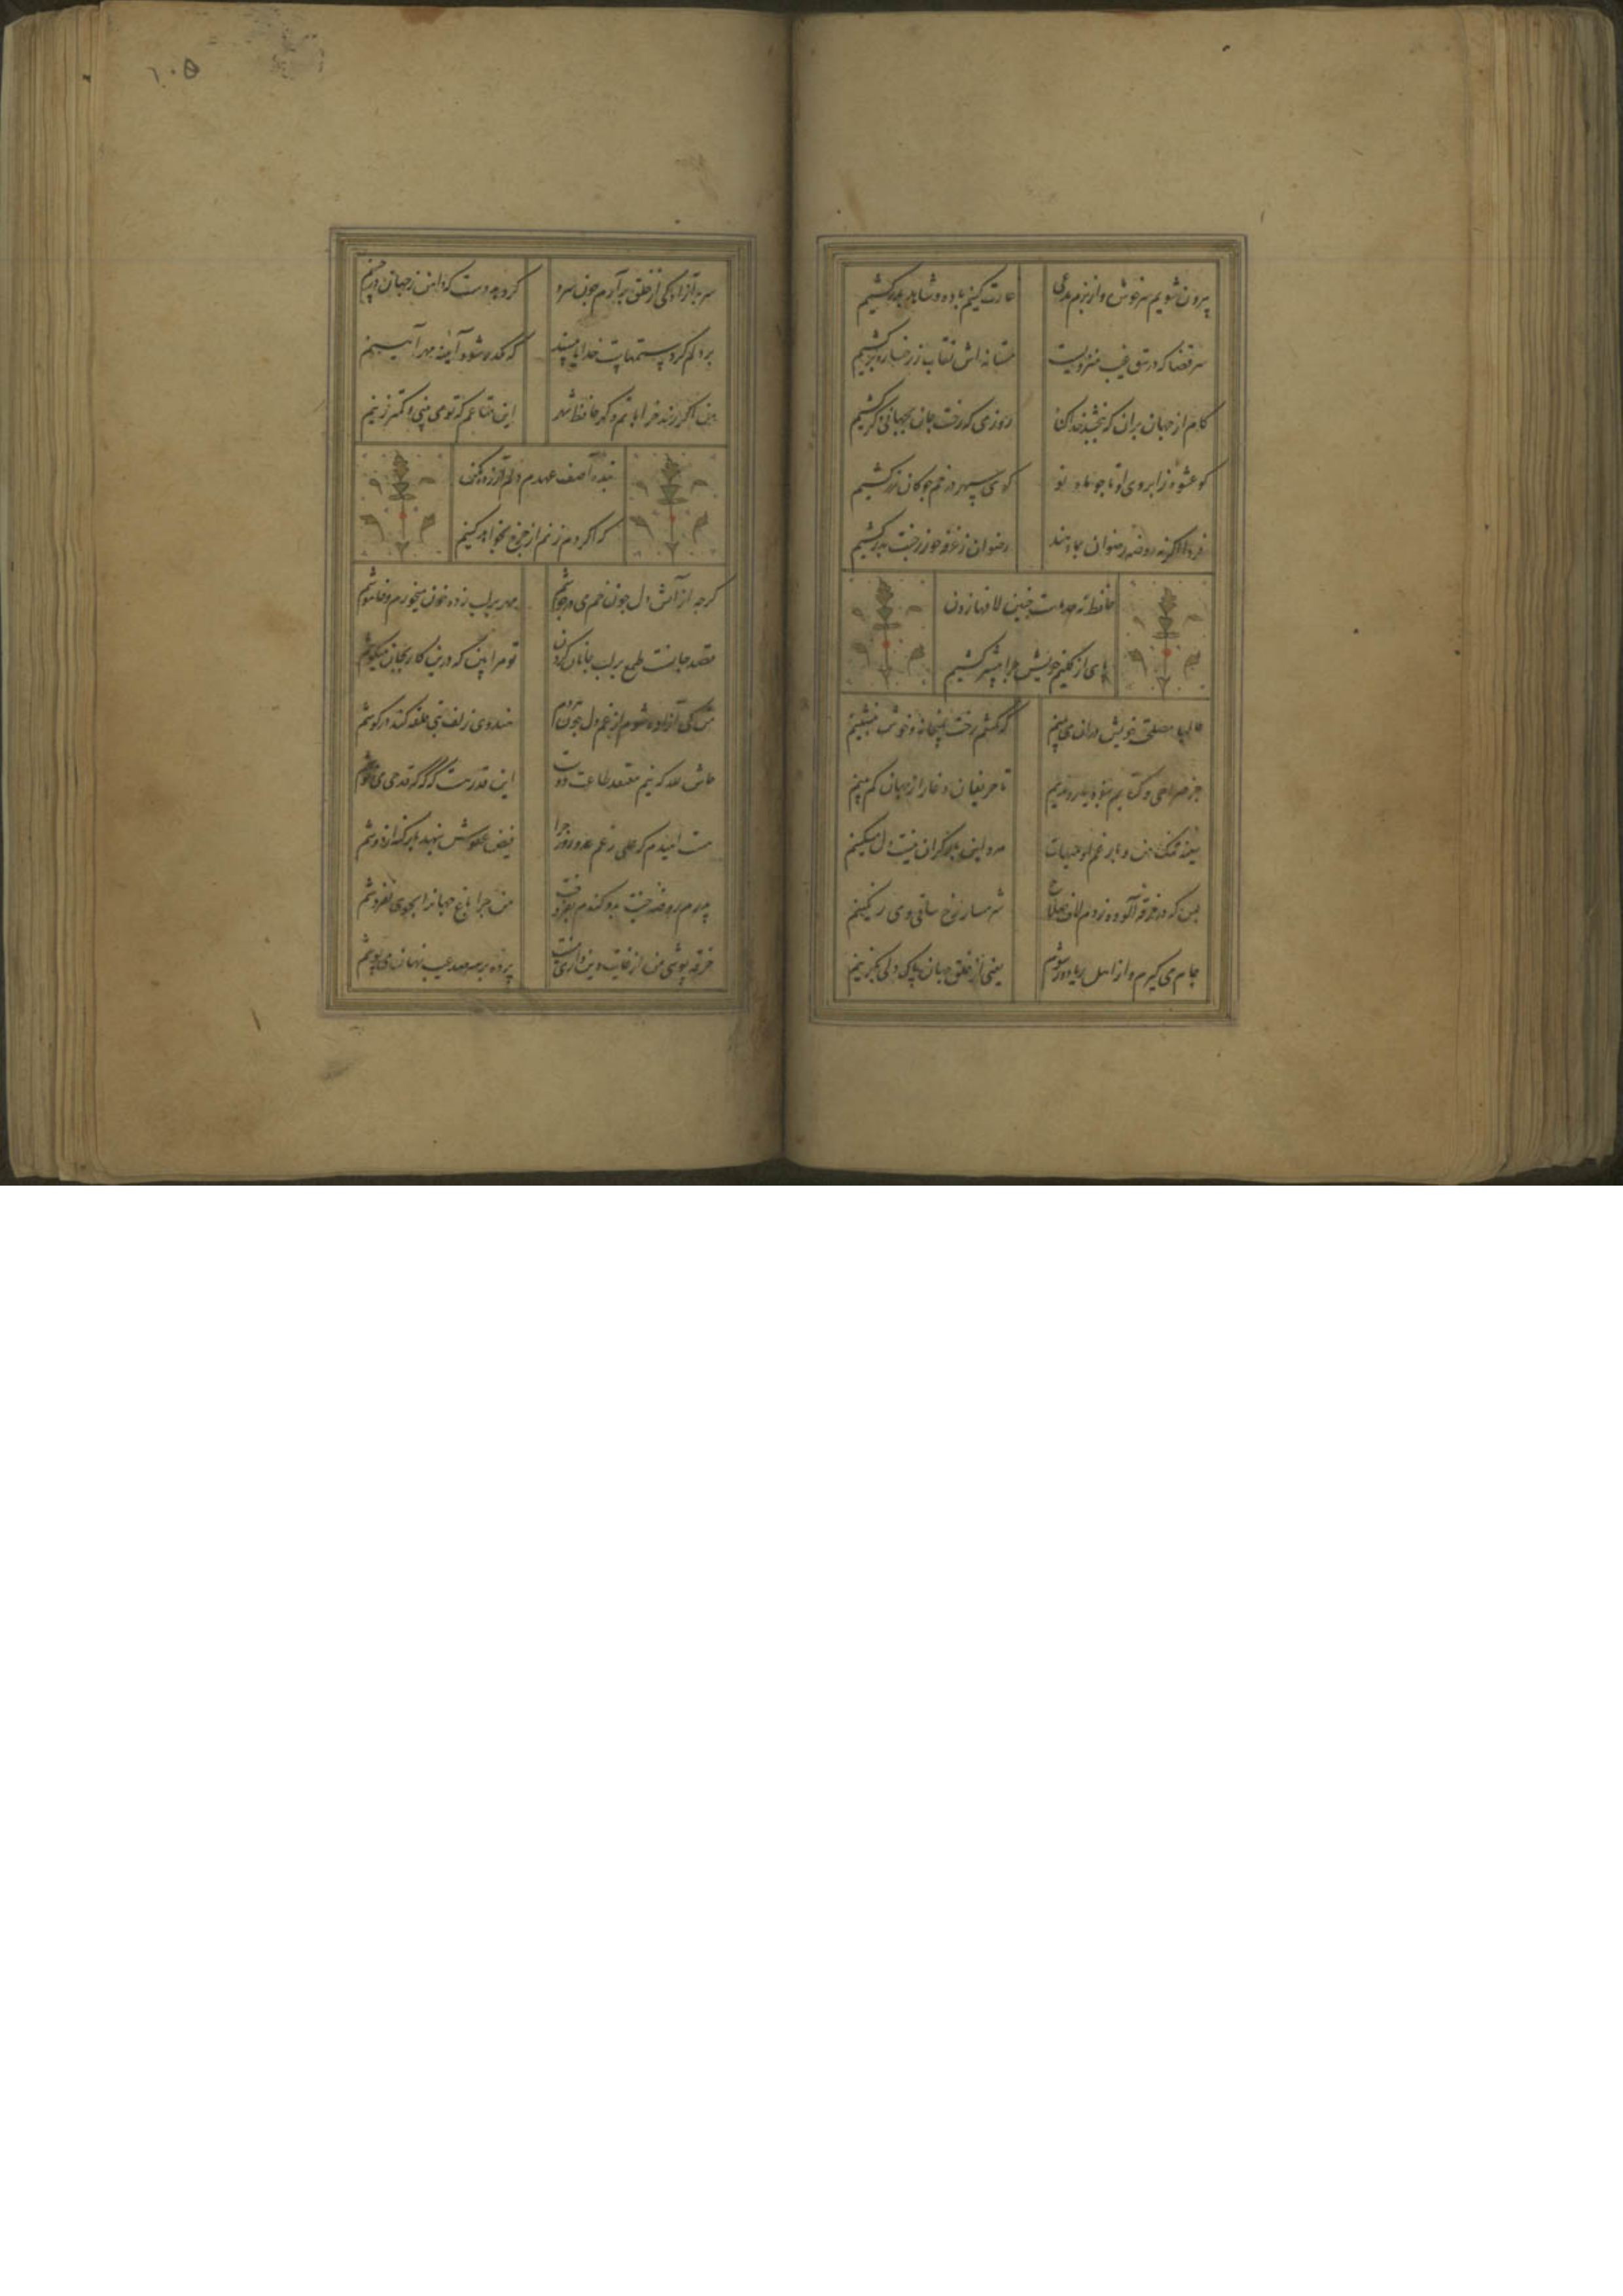 بیرون شویم سرخوش و از بزم مدعی غارت کنیم باده و شاهد ببر کشیم
سر قضا که در تتق غیب منزویست مستانه اش نقاب ز رخساره برکشیم
کام از جهان بران که ببخشد خدا گناه روزی که رخت جان بجهانی دگر کشیم
کو عشوه ز ابروی او تا چو ماه نو کوی سپهر در خم چوکان زر کشیم
فردا اگر نه روضه رضوان بما دهند رضوان ز غرفه حور ز جنت بدر کشیم
حافظ نه حد ماست چنین لافها زدن
پای از کلیم خویش چرا پیشتر کشیم
حالیا مصلحت خویش در ان می بینم که کشم رخت بمیخانه و خوش بنشینم
جز صراحی و کتابم نبود یار و ندیم تا حریفان دغا را ز جهان کم بینم
سینه تنک من و بار غم او هیهات مرد این بار کران نیست دل مسکینم
بس که در خرقه آلوده زدم لاف صلاح شرمسار رخ ساقی و می رنکینم
جام می کیرم و از اهل ریا دور شوم یعنی از خلق جهان پاک دلی بکزینم
١٠۵
سر بآزادکی از خلق برآرم چون سرو کر دهد دست که دامن ز جهان درچینم
بر دلم کرد ستمهاست خدایا مپسند که مکدر شود آینه مهر آیینم
من اکر رند خراباتم و کر حافظ شهر این متاعم که تو می بینی و کمتر زینم
بنده آصف عهدم دلم آزرده مکن
که اکر دم زنم از چرخ بخواهد کینم
کرچه از آتش دل چون خم می در جوشم مهر بر لب زده خون میخورم و خاموشم
قصد جانست طمع بر لب جانان کردن تو مرا بین که درین کار بجان میکوشم
من کی آزاده شوم از غم دل چون هر دم هندوی زلف بتی حلقه کند در کوشم
حاش لله که نیم معتقد طاعت خویش این قدر هست که که که قدحی می نوشم
هست امیدم که علی رغم عدو روز جزا فیض عفوش ننهد بار کنه از دوشم
پدرم روضه جنت بدو کندم بفروخت من چرا باغ جهانرا بجوی نفروشم
خرقه پوشی من از غایت دین داری نیست پرده بر سر صد عیب نهان می پوشم